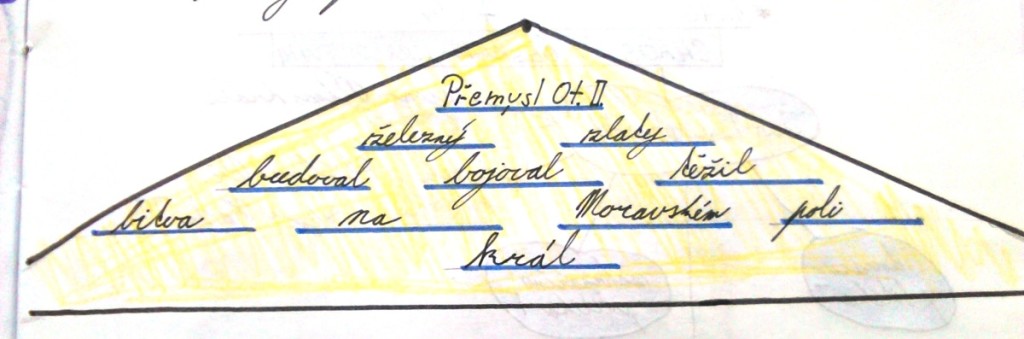 Přemysl Ot. II.
železný zlatý
budoval bojoval těžil
bitva na Moravském poli
král